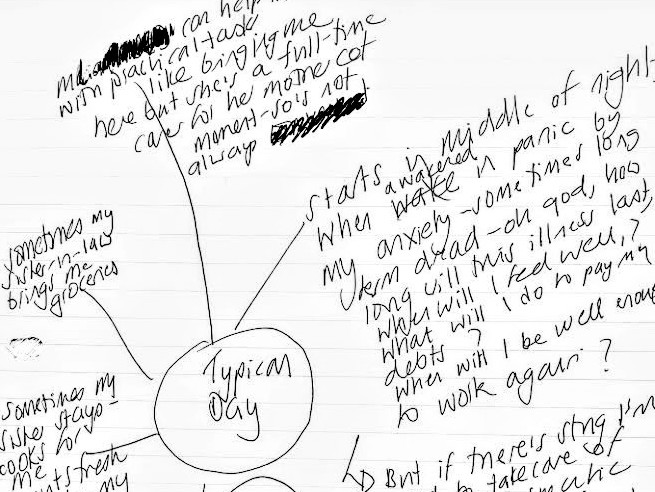 can help m
with practical task
like bringing me
here but she's a full-time
carer for her mother cot
moment - so is not
always
starts in middle of night
when awakened in panic by
my anxiety - sometimes long
term dread - oh god, how
long will this illness last,
when will I feel well,?
what will I do to pay my
debts?
when will I be well enoug
to work again?
sometimes my
sister-n-law
brings me
groceries
Typical
Day
sometimes my
sister stays-
cooks for
me
fresh
my
But if there's I'm
to take care of